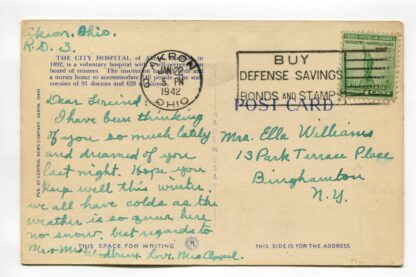 Akron, Ohio.
R.D. 3.
THE CITY HOSPITAL of
1892, is a voluntary hospital
board of trustees. The institution
a rooms to accommodate
sists of 91 doctors and 628
AKRON
JAN 22
PM
1942
OHIO
BUY
DEFENSE SAVINGS
BONDS AND STAMPS
UNITED STATES OF AMERICA
INDUSTRY AGRICULTURE
POST CARD
Dear Friend:
I have been thinking
of you so much lately
and dreamed of you
last night. Hope you
keep well this winter.
we all have colds as the
weather is so queer here
no snow. best regards to
Mr. & Mrs. love, Mrs.
Mrs. Ella Williams
13 Park Terrace Place
Binghamton
N.Y.
PUB. BY CENTRAL NEWS COMPANY, AKRON, OHIO
MADE IN U.S.A.
THIS SPACE FOR WRITING
THIS SIDE IS FOR THE ADDRESS